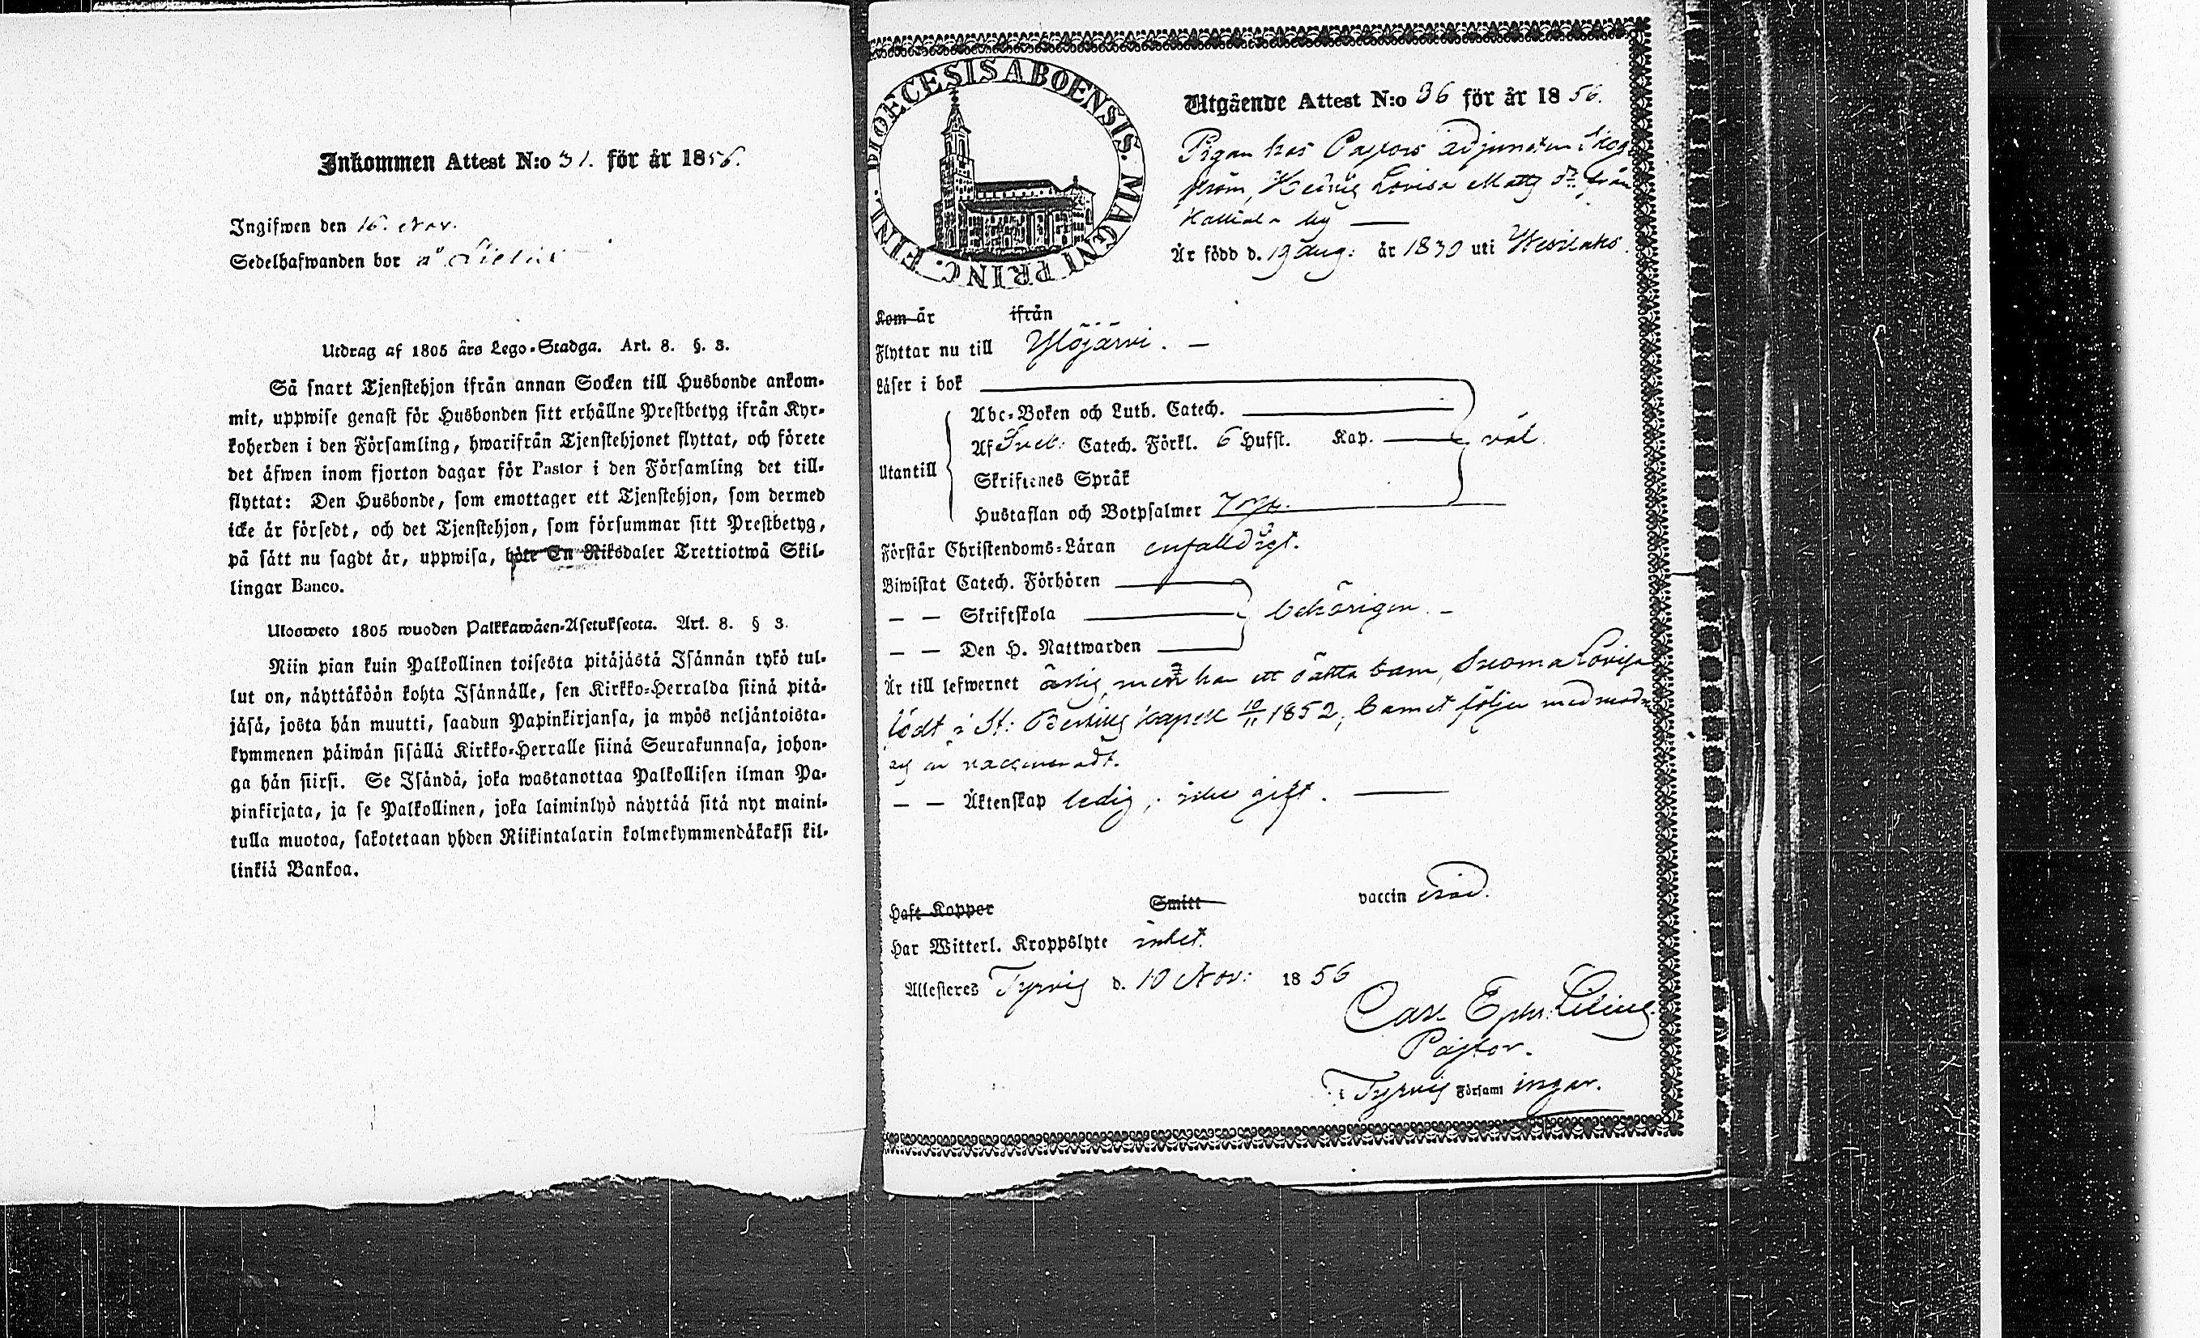 Inkommen Attest N:o 31. för år 1856.
Ingifwen den 16. Nov.
Sedelhafwanden bor å
Utdrag af 1805 års Lego-Stadga. Art. 8. §. 3.
Så snart Tjenstehjon ifrån annan Socken till Husbonde ankom-
mit, uppwise genast för Husbonden sitt erhållne Prestbetyg ifrån Kyr-
koherden i den Församling, hwarifrån Tjenstehjonet flyttat, och förete
det äfwen inom fjorton dagar för Pastor i den Församling det till-
flyttat: Den Husbonde, som emottager ett Tjenstehjon, som dermed
icke är försedt, och det Tjenstehjon, som försummar sitt Prestbetyg,
på sätt nu sagdt är, uppwisa, böte En Riksdaler Trettiotwå Skil-
lingar Banco.
Ulosweto 1805 wuoden Palkkawäen-Asetuksesta. Art. 8. § 3.
Niin pian kuin Palkollinen toisesta pitäjästä Isännän tykö tul-
lut on, näyttäköön kohta Isännälle, sen Kirkko-Herralda siinä pitä-
jäsä, josta hän muutti, saadun Papinkirjansa, ja myös neljäntoista-
kymmenen päiwän sisällä Kirkko-Herralle siinä Seurakunnasa, johon-
ga hän siirsi. Se Isändä, joka wastanottaa Palkollisen ilman Pa-
pinkirjata, ja se Palkollinen, joka laiminlyö näyttää sitä nyt maini-
tulla muotoa, sakotetaan yhden Riikintalarin kolmekymmendäkaksi kil-
linkiä Bankoa.
DIOECESIS ABOENSIS. MAGNI PRINC. FINL.
Utgående Attest N:o 36 för år 1856.
Pigan hos Pastors adjuncten Skog
ström, Hedvig Lovisa Matts dr från
by
Är född d. 19 Aug: år 1830 uti Wesilaks
Kom år ifrån
Flyttar nu till Ylöjärvi.
Läser i bok
Abc-Boken och Luth. Catech.
Af Sveb: Catech. Förkl. 6 Hufst. Kap. väl.
Utantill
Skriftenes Språk
Hustaflan och Botpsalmer
Förstår Christendoms-Läran enfalldigt.
Biwistat Catech. Förhören
— — Skriftskola behörigen
— — Den H. Nattwarden
Är till lefwernet ärlig, men har ett oäkta barn, Lovisa
födt i St: Bertills Kapell 10/11 1852, barnet följer med mod-
och är vaccineradt.
— — Äktenskap ledig, icke gift.
Haft Koppor Smitt vaccin erad.
Har Witterl. Kroppslyte intet.
Attesteres Tyrvis d. 10 Nov: 1856
Carl Ephr. Lilius
Pastor.
i Tyrvis Församl ingar.